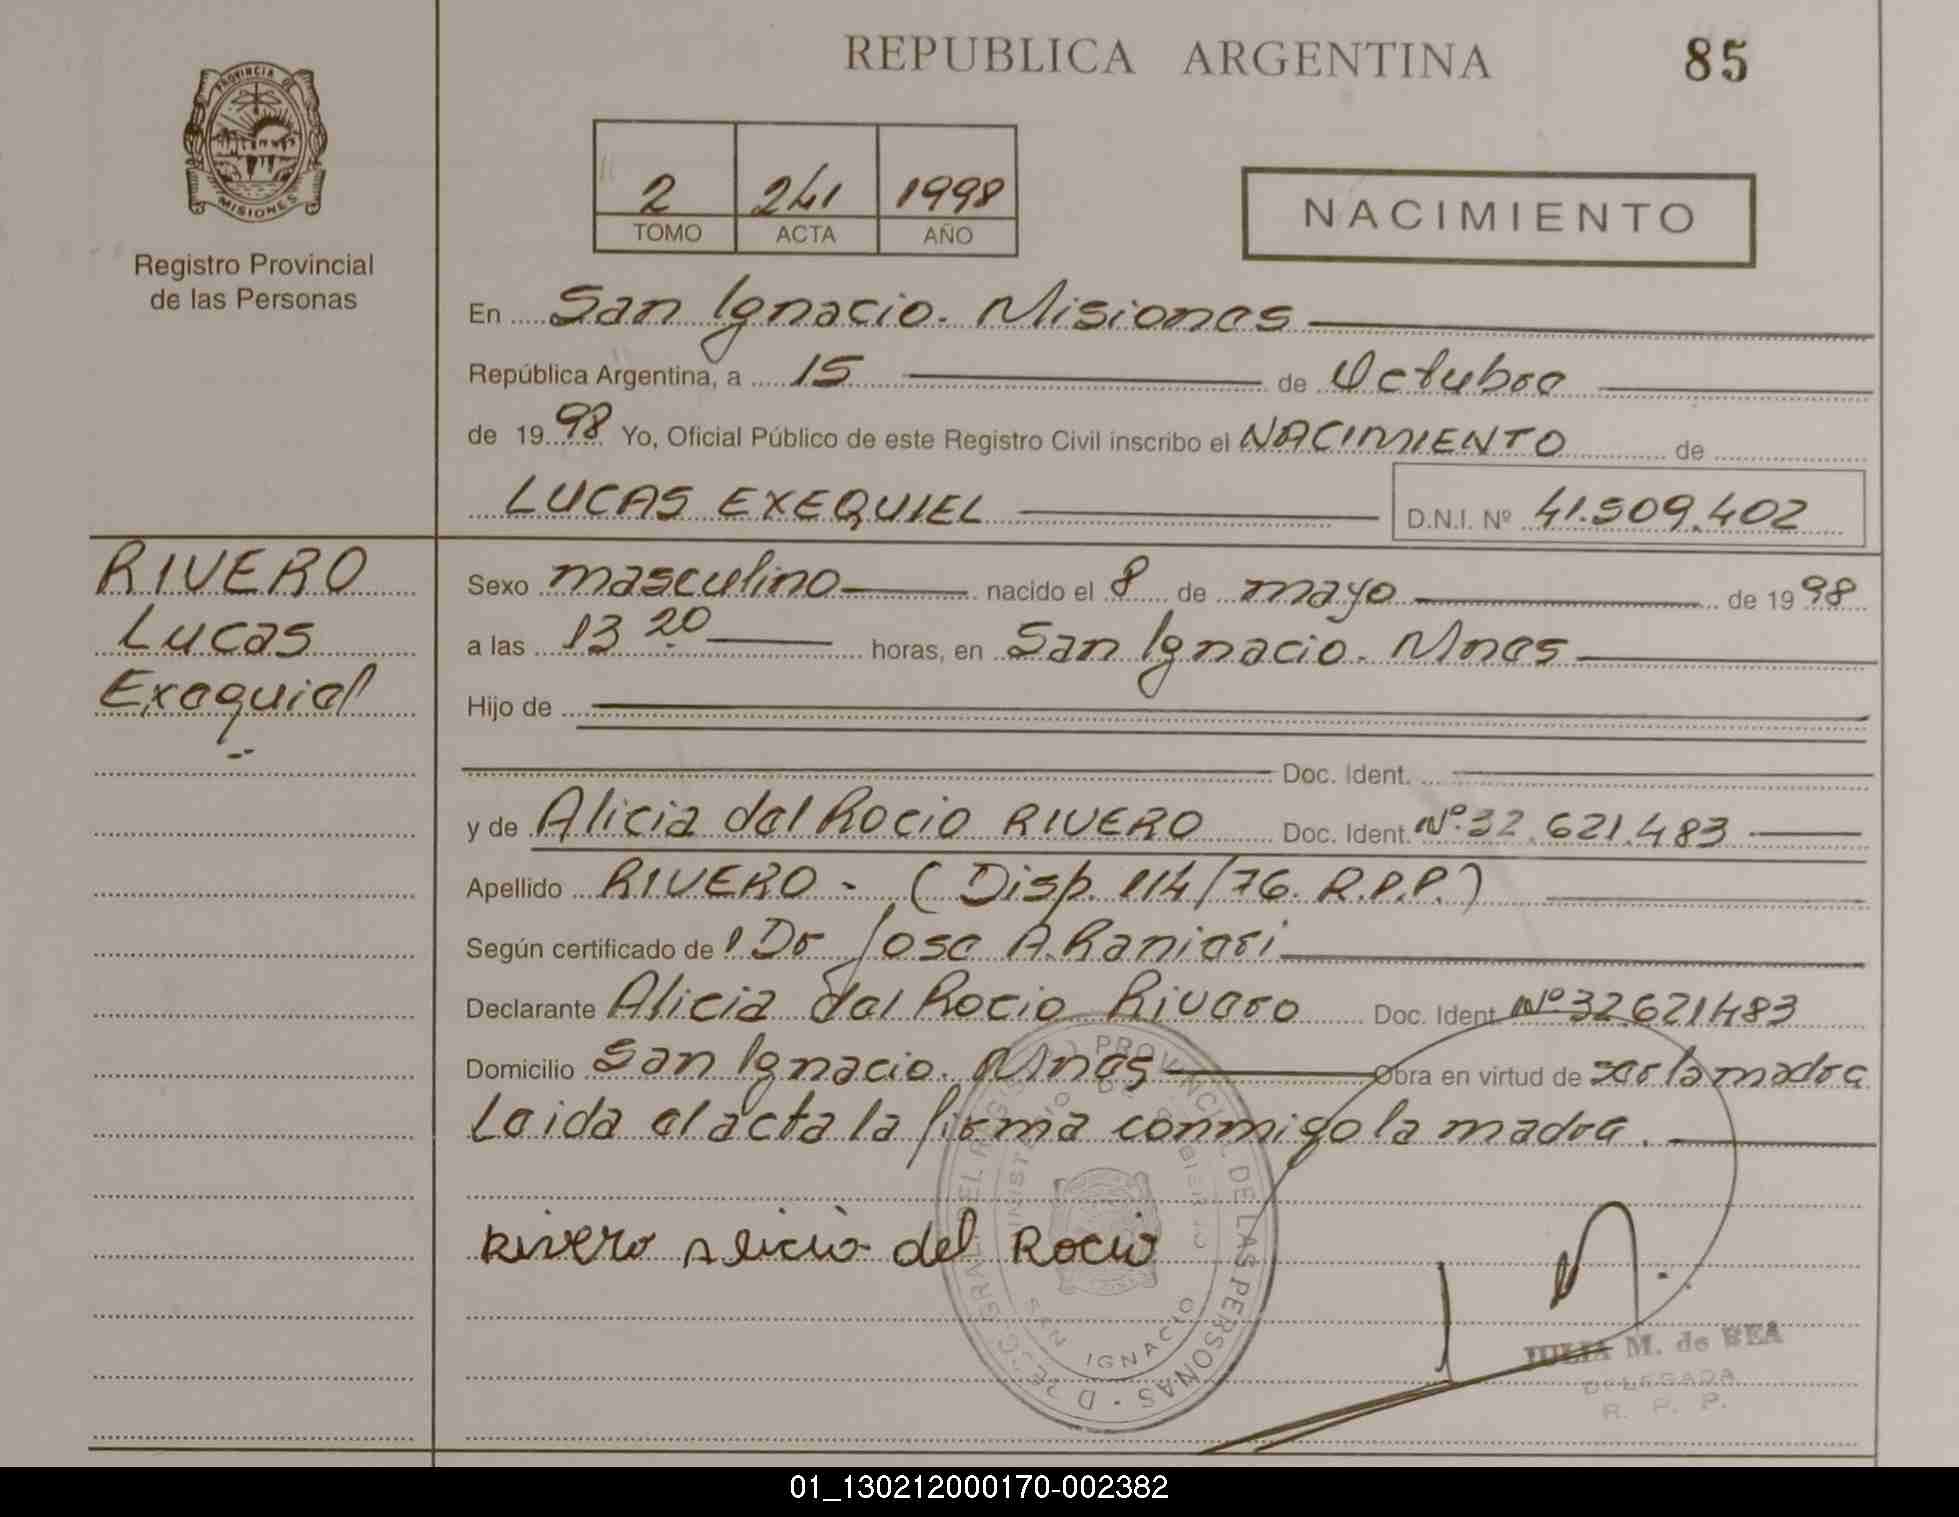 REPUBLICA ARGENTINA
85
PROVINCIA DE
MISIONES
Registro Provincial
de las Personas
2 241 1998
TOMO ACTA AÑO
NACIMIENTO
En San Ignacio. Misiones
República Argentina, a 15 de Octubre
de 1998 Yo, Oficial Público de este Registro Civil inscribo el NACIMIENTO de
LUCAS EXEQUIEL D.N.I. Nº 41.509.402
RIVERO
Lucas
Exequiel
Sexo masculino nacido el 8 de mayo de 1998
a las 13 20 horas, en San Ignacio. Mnes
Hijo de
Doc. Ident.
y de Alicia del Rocio RIVERO Doc. Ident. Nº 32.621.483
Apellido RIVERO - (Disp. 114/76. R.P.P.)
Según certificado de Dr Jose A. Ranieri
Declarante Alicia del Rocio Rivero Doc. Ident. Nº 32621483
Domicilio San Ignacio. Mnes Obra en virtud de ser la madre
Leida el acta la firma conmigo la madre.
Rivero Alicia del Rocio
PROVINCIAL DE LAS PERSONAS
SAN IGNACIO
JULIA M. de BEA
DELEGADA
R. P. P.
01_130212000170-002382